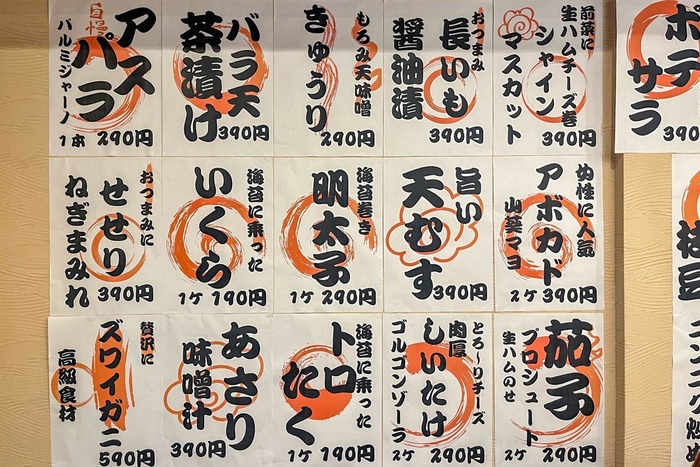 前菜に
生ハムチーズ巻
シャイン
マスカット
390円
おつまみ
長いも
醤油漬
390円
もろみ天味噌
きゅうり
290円
バラ天
茶漬け
390円
自慢
アス
パラ
パルミジャーノ
1本 290円
ポテ
サラ
390円
女性に人気
アボカド
山葵マヨ
2ケ 390円
旨い
天むす
390円
海苔巻き
明太子
1ケ 290円
海苔に乗った
いくら
1ケ 190円
おつまみに
せせり
ねぎまみれ
390円
枝豆
茄子
プロシュート
生ハムのせ
2ケ 290円
とろ〜りチーズ
肉厚
しいたけ
ゴルゴンゾーラ
2ケ 290円
海苔に乗った
トロ
たく
1ケ 190円
あさり
味噌汁
390円
贅沢に
ズワイガニ
高級食材
590円